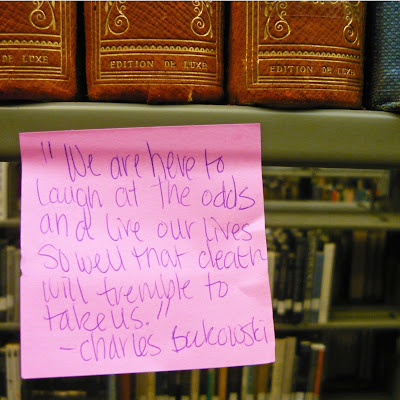 DE LUXE
EDITION DE LUXE
EDITION DE LUXE
"We are here to
laugh at the odds
and live our lives
so well that death
will tremble to
take us."
- Charles Bukowski